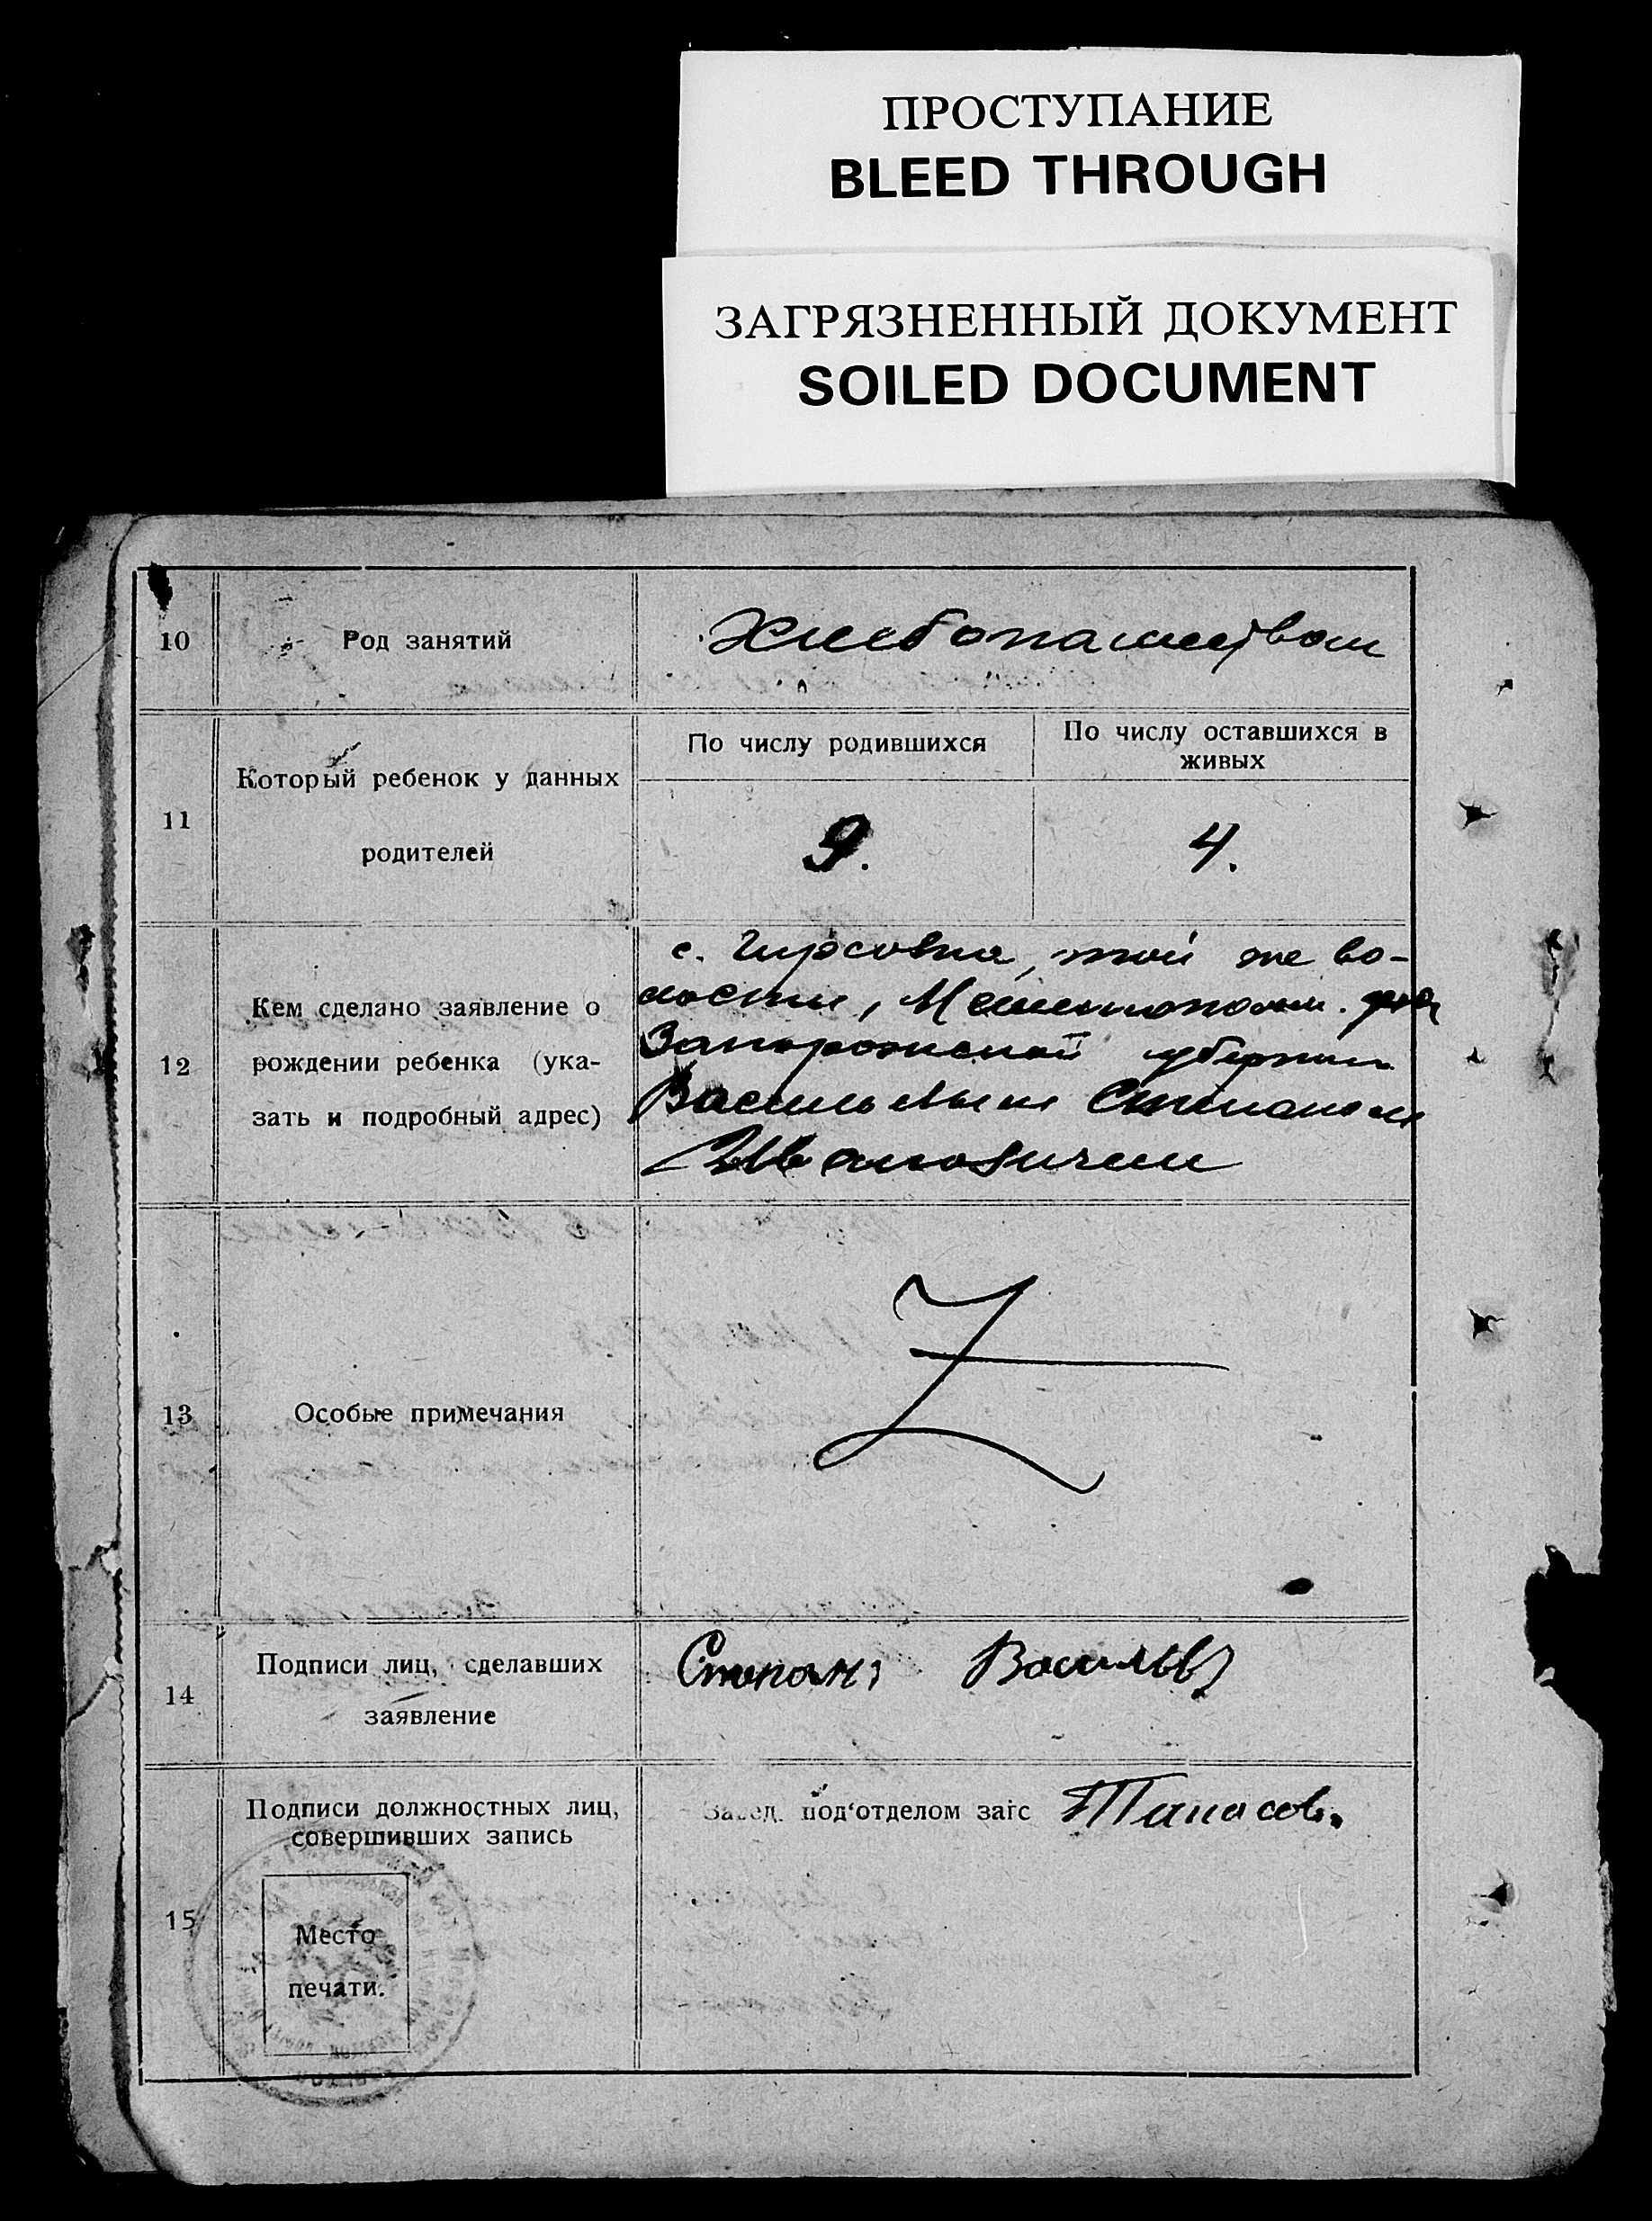 ПРОСТУПАНИЕ
BLEED THROUGH
ЗАГРЯЗНЕННЫЙ ДОКУМЕНТ
SOILED DOCUMENT
10
Род занятий
Хлебопашеством
11
Который ребенок у данных
родителей
По числу родившихся
9.
По числу оставшихся в
живых
4.
12
Кем сделано заявление о
рождении ребенка (ука-
зать и подробный адрес)
с. Гирсовка, той же во-
лости, Мелитопольск.
Запорожской губернии
Васильевым Степаном
Ивановичем
13
Особые примечания
Z
14
Подписи лиц, сделавших
заявление
Степанъ
15
Подписи должностных лиц,
совершивших запись
Место
печати.
Завед. под'отделом загс Танасов.